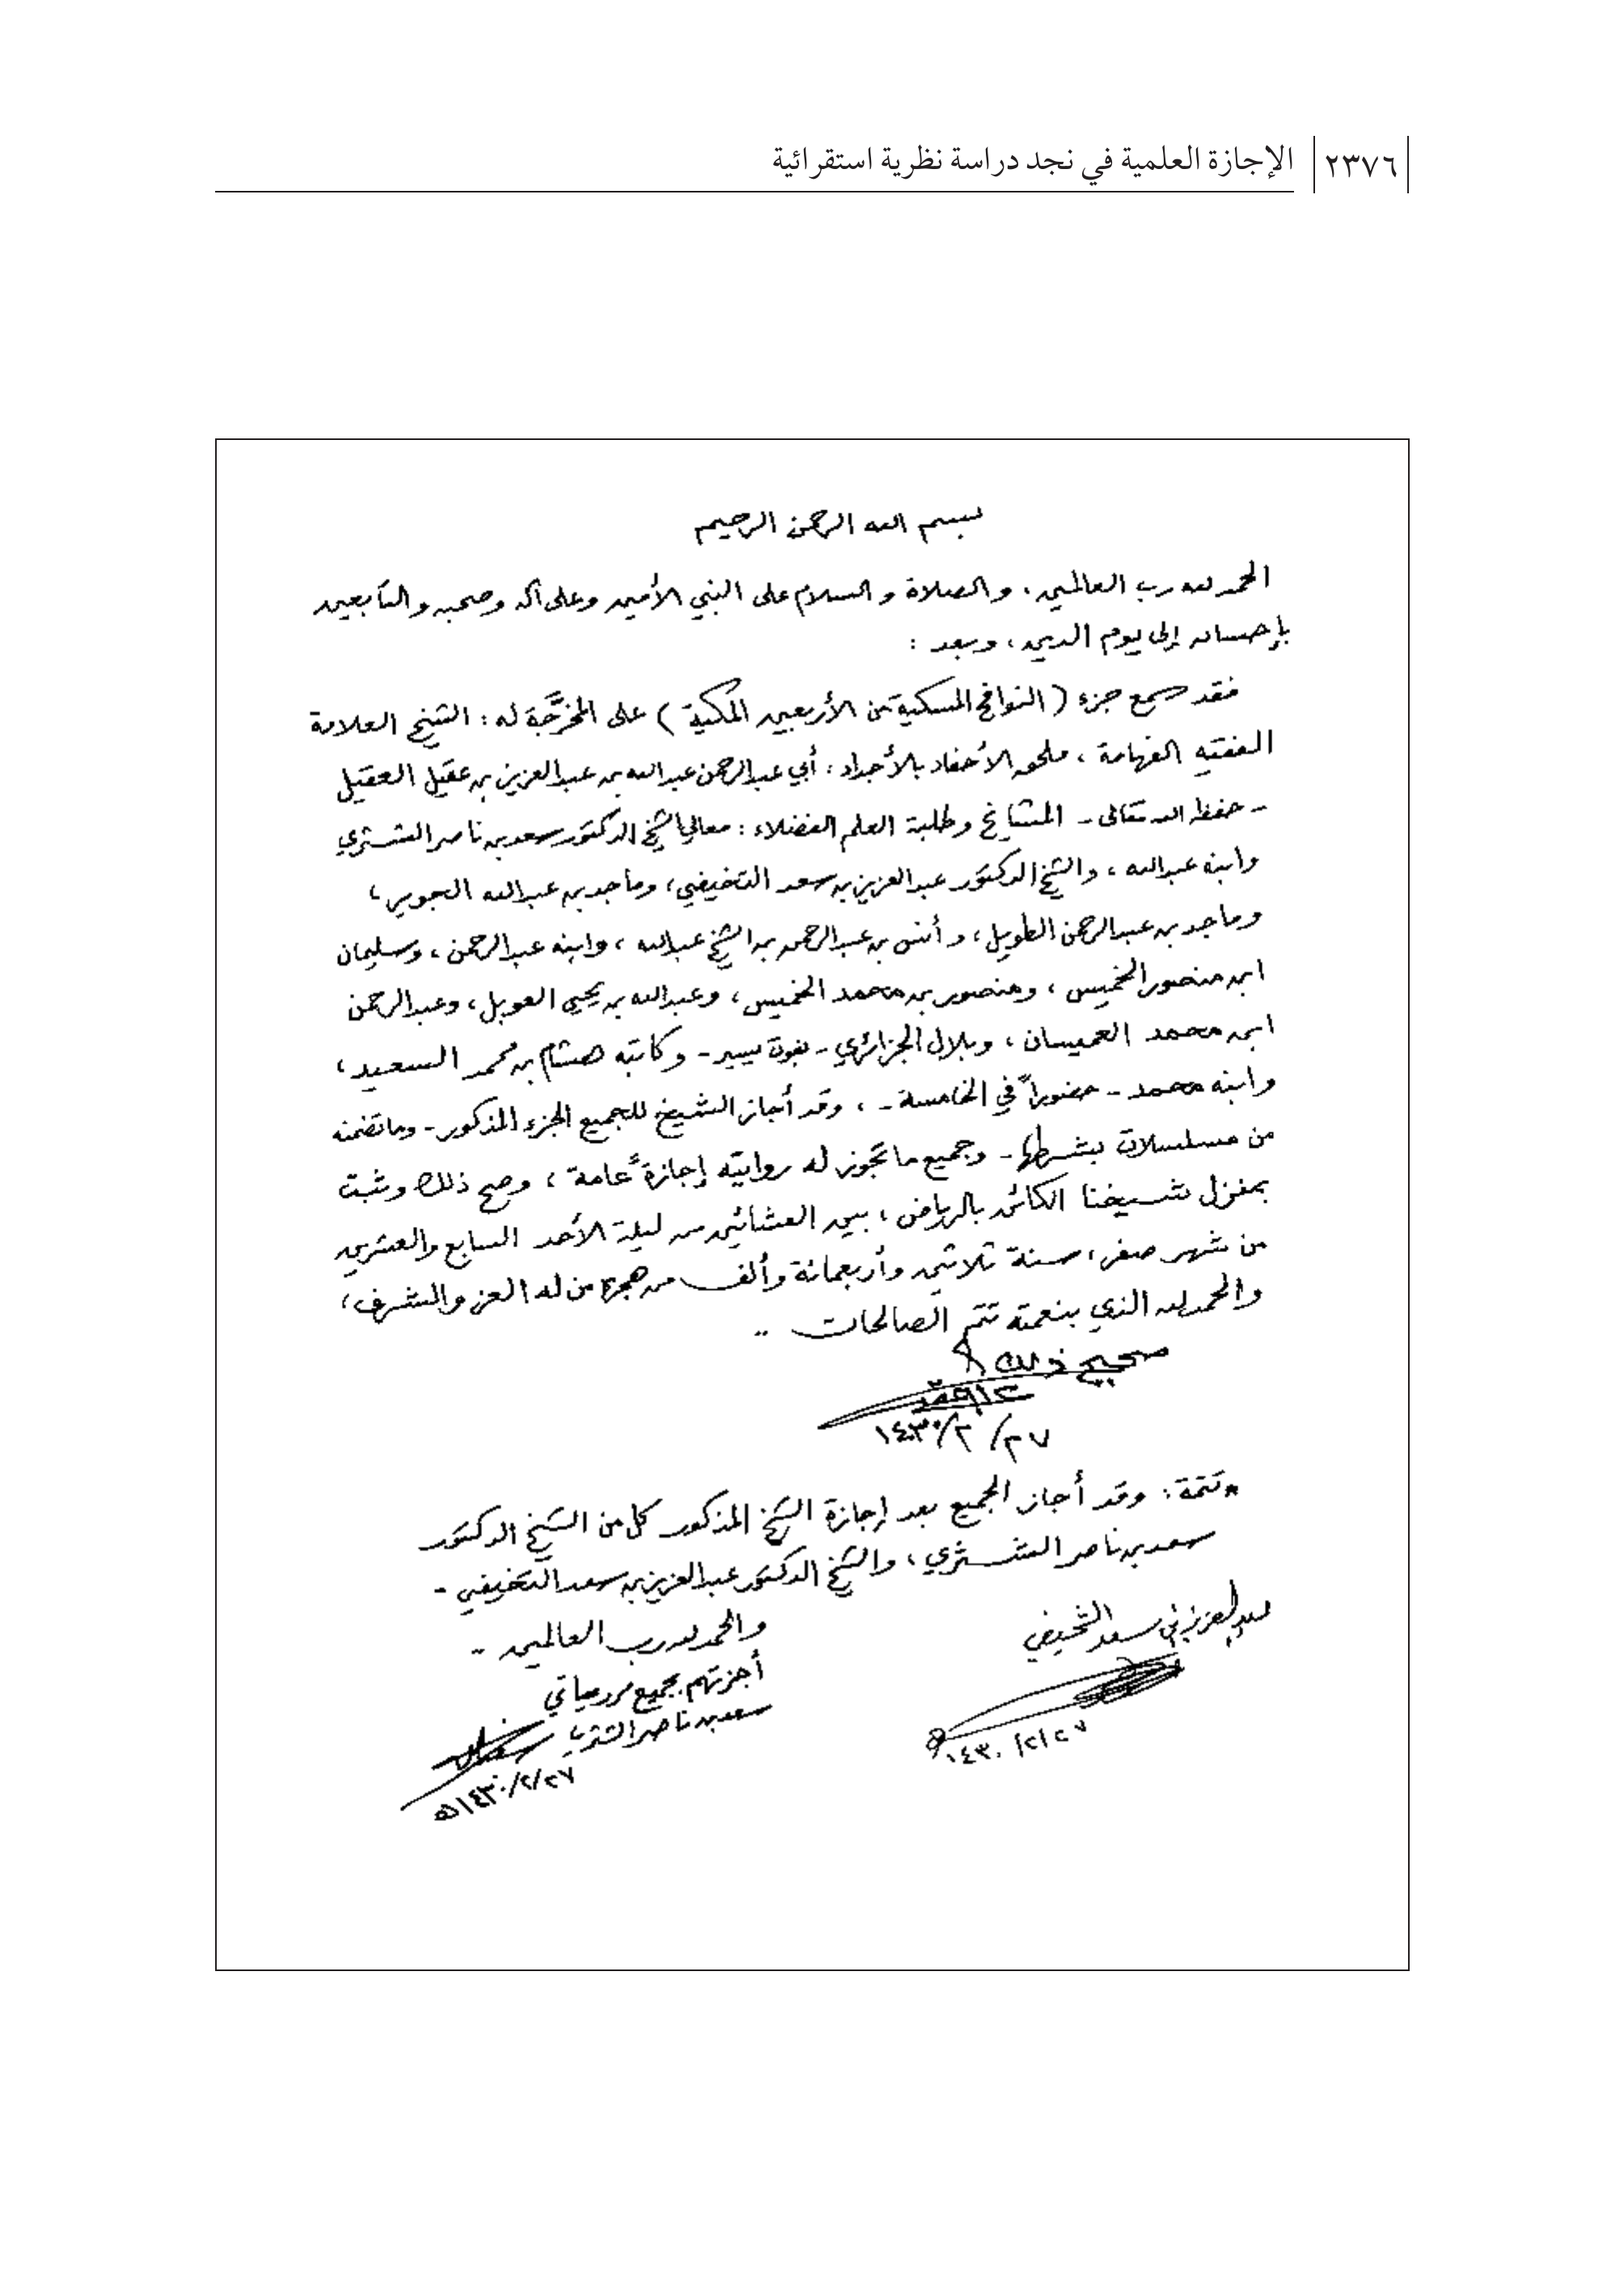 ٢٣٧٦ الإجازة العلمية في نجد دراسة نظرية استقرائية
بسم الله الرحمن الرحيم
الحمد لله رب العالمين، والصلاة والسلام على النبي الأمين وعلى آله وصحبه والتابعين
بإحسان إلى يوم الدين، وبعد :
فقد سمع جزء ( النوافح المسكية من الأربعين المكية ) على المخرَّجة له : الشيخ العلامة
الفقيه الفهامة ، ملحق الأحفاد بالأجداد : أبي عبدالرحمن عبدالله بن عبدالعزيز بن عقيل العقيل
- حفظه الله تعالى - المشايخ وطلبة العلم الفضلاء : معالي الشيخ الدكتور سعد بن ناصر الشثري
وابنه عبدالله ، والشيخ الدكتور عبدالعزيز بن سعد التخيفي، وماجد بن عبدالله الجوير ،
وماجد بن عبدالرحمن الطويل ، وأنس بن عبدالرحمن بن الشيخ عبدالله ، وابنه عبدالرحمن ، وسليمان
ابن منصور الخميس ، ومنصور بن محمد الخميس ، وعبدالله بن يحيى العوبل ، وعبدالرحمن
ابن محمد العميسان ، وبلال الجزائري - بفوت يسير - وكاتبه هشام بن محمد السعيد ،
وابنه محمد - حضوراً في الخامسة - ، وقد أجاز الشيخ للجميع الجزء المذكور - وما تضمنه
من مسلسلات بشرطها - وجميع ما تجوز له روايته إجازةً عامة ، وصح ذلك وثبت
بمنزل شيخنا الكائن بالرياض ، بين العشائين من ليلة الأحد السابع والعشرين
من شهر صفر ، سنة ثلاثين وأربعمائة وألف من هجرة من له العز والشرف ،
والحمد لله الذي بنعمته تتم الصالحات ..
صحيح ذلك
٢٧/ ٢/ ١٤٣٠
* تتمة : وقد أجاز الجميع بعد إجازة الشيخ المذكور كل من الشيخ الدكتور
سعد بن ناصر الشثري ، والشيخ الدكتور عبدالعزيز بن سعد التخيفي -
والحمد لله رب العالمين -
عبدالعزيز بن سعد التخيفي
١٤٣٠/٢/٢٧
أجزتهم بجميع مروياتي
سعد بن ناصر الشثري
١٤٣٠/٢/٢٧هـ